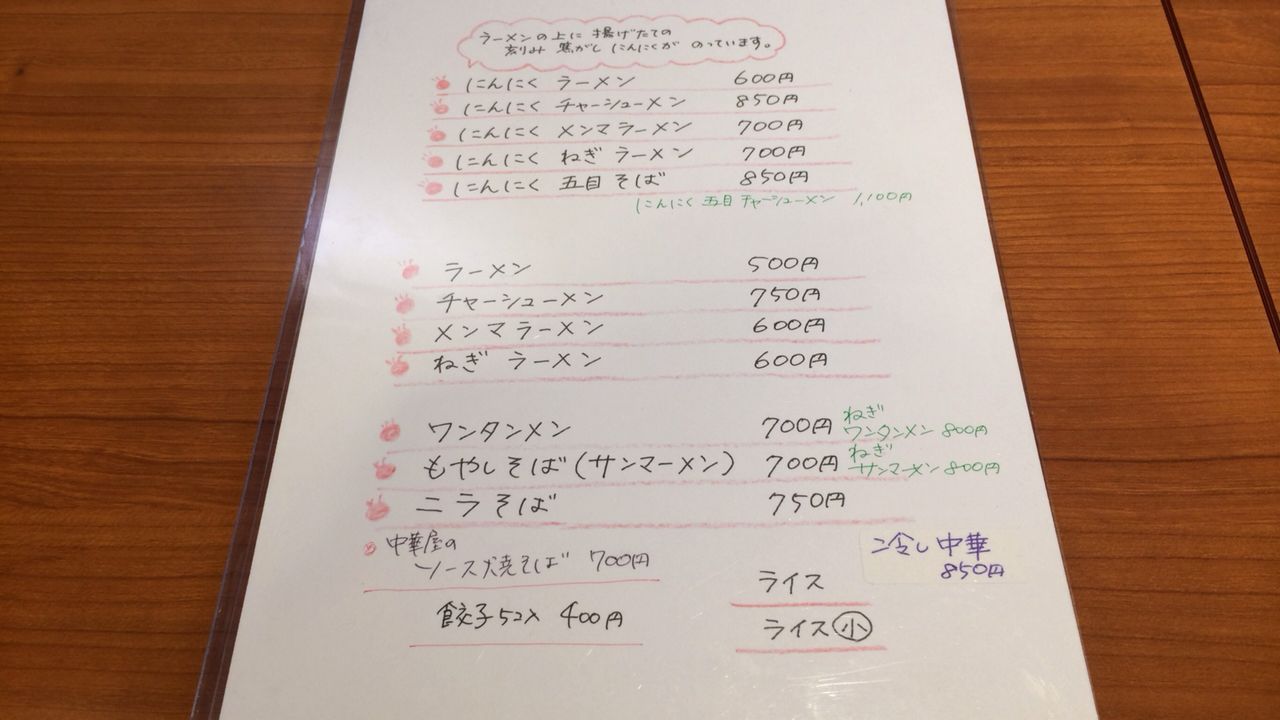 ラーメンの上に 揚げたての
刻み 焦がし にんにくが のっています。
にんにく ラーメン 600円
にんにく チャーシューメン 850円
にんにく メンマラーメン 700円
にんにく ねぎ ラーメン 700円
にんにく 五目 そば 850円
にんにく 五目 チャーシューメン 1,100円
ラーメン 500円
チャーシューメン 750円
メンマ ラーメン 600円
ねぎ ラーメン 600円
ワンタンメン 700円
ねぎ
ワンタンメン 800円
もやしそば(サンマーメン) 700円
ねぎ
サンマーメン 800円
ニラそば 750円
中華屋の
ソース焼そば 700円
冷し中華
850円
餃子5コ入 400円
ライス
ライス小